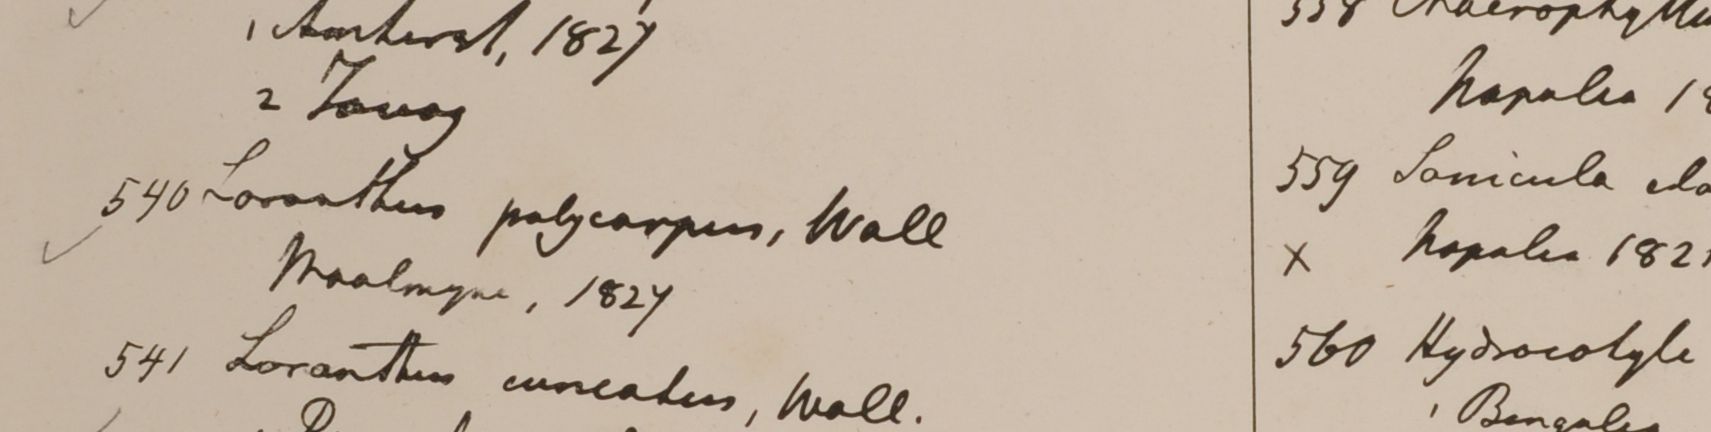 1 Amherst, 1827
2 Tavoy
540 Loranthus polycarpus, Wall
Moalmyne, 1827
541 Loranthus cuneatus, Wall.
558
Napalia 18
559 Sanicula ela
x Napalia 182
560 Hydrocotyle
1 Bengalia